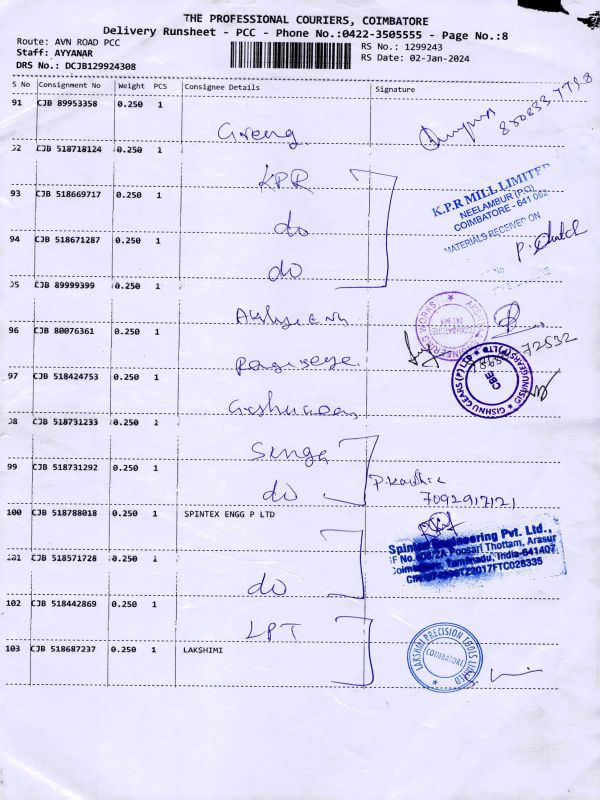 THE PROFESSIONAL COURIERS, COIMBATORE
Delivery Runsheet - PCC - Phone No.:0422-3505555 - Page No.:8
Route: AVN ROAD PCC
RS No.: 1299243
Staff: AYYANAR
RS Date: 02-Jan-2024
DRS No.: DCJB129924308
S No Consignment No Weight PCS Consignee Details Signature
91 CJB 89953358 0.250 1
Greeng
CJB 518718124 0.250 1
KPR
93 CJB 518669717 0.250 1
do
K.P.R MILL LIMITED
NEELAMBUR (P.O)
COIMBATORE - 641 062
MATERIALS RECEIVED ON
94 CJB 518671287 0.250 1
do
CJB 89999399 0.250 1
96 CJB 80076361 0.250 1
72532
97 CJB 518424753 0.250 1
GISHNU GEARS (P) LTD
CBE
CJB 518731233 0.250 1
99 CJB 518731292 0.250 1
do
7092917121
100 CJB 518788018 0.250 1 SPINTEX ENGG P LTD
Spintex Engineering Pvt. Ltd.,
Poosari Thottam, Arasur
Coimbatore, Tamilnadu, India-641407
CJB 518571728 0.250 1
do
102 CJB 518442869 0.250 1
LPT
103 CJB 518687237 0.250 1 LAKSHIMI
LAKSHMI PRECISION TOOLS LIMITED
COIMBATORE